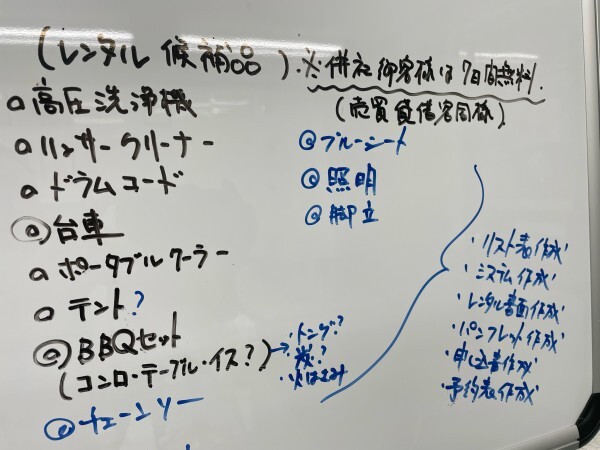 (レンタル候補品)
※併社御客様は7日間無料.
(売買賃借客同様)
高圧洗浄機
リンサークリーナー
ドラムコード
◎台車
ポータブルクーラー
テント?
◎BBQセット
(コンロ・テーブル・イス?)
→・トング?
・炭?
・火ばさみ
◎チェーンソー
◎ブルーシート
◎照明
◎脚立
・リスト表作成
・システム作成
・レンタル書面作成
・パンフレット作成
・申込書作成
・予約表作成